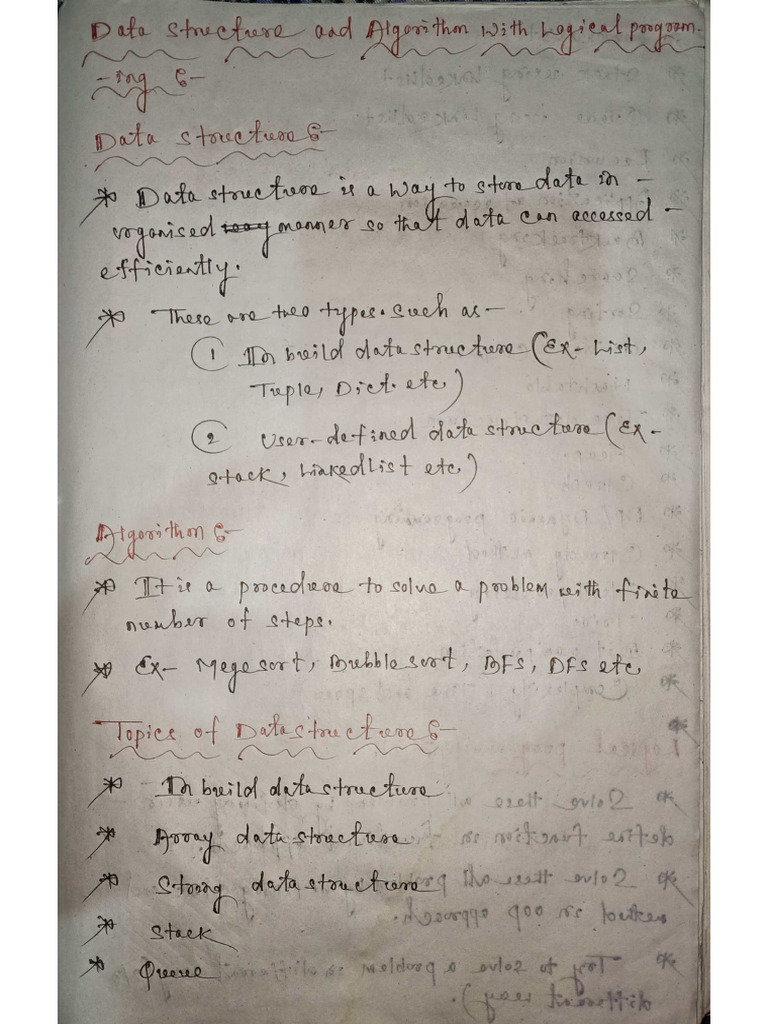 Data structure and Algorithm with Logical program-
-ing :-
Data structure :-
* Data structure is a way to store data in -
organised way manner so that data can accessed -
efficiently.
* These are two types. Such as -
1 In build data structure (Ex- List,
Tuple, Dict. etc)
2 User-defined data structure (Ex-
stack, LinkedList etc)
Algorithm :-
* It is a procedure to solve a problem with finite
number of steps.
* Ex- Megesort, Bubblesort, BFS, DFS etc
Topics of Data structure :-
* In build data structure
* Array data structure
* String data structure
* Stack
* Queue